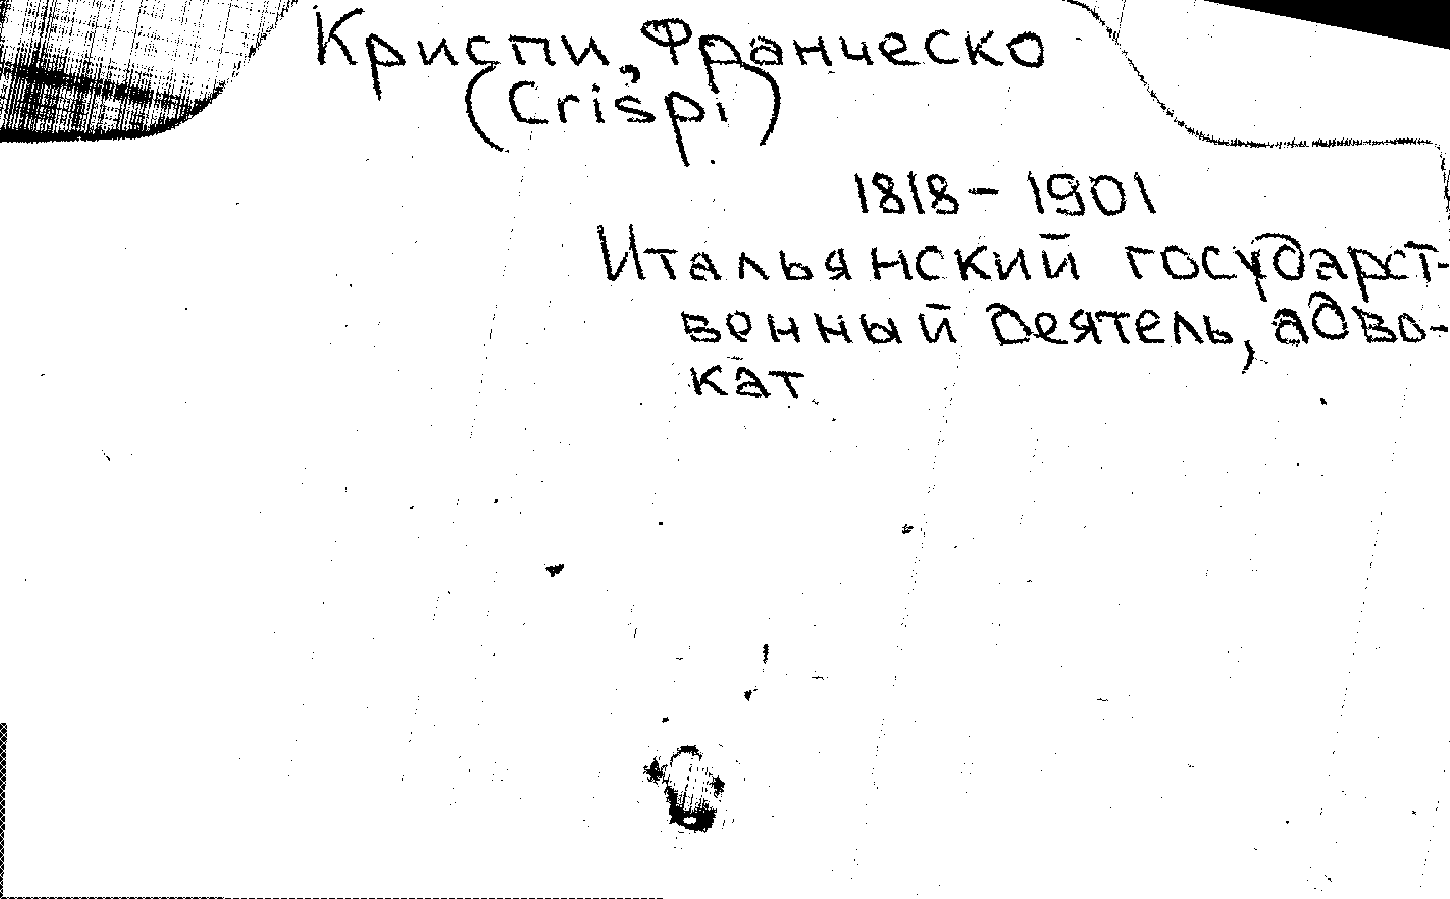 Криспи, Франческо
(Crispi)
1818 - 1901
Итальянский государст-
венный деятель, адво-
кат